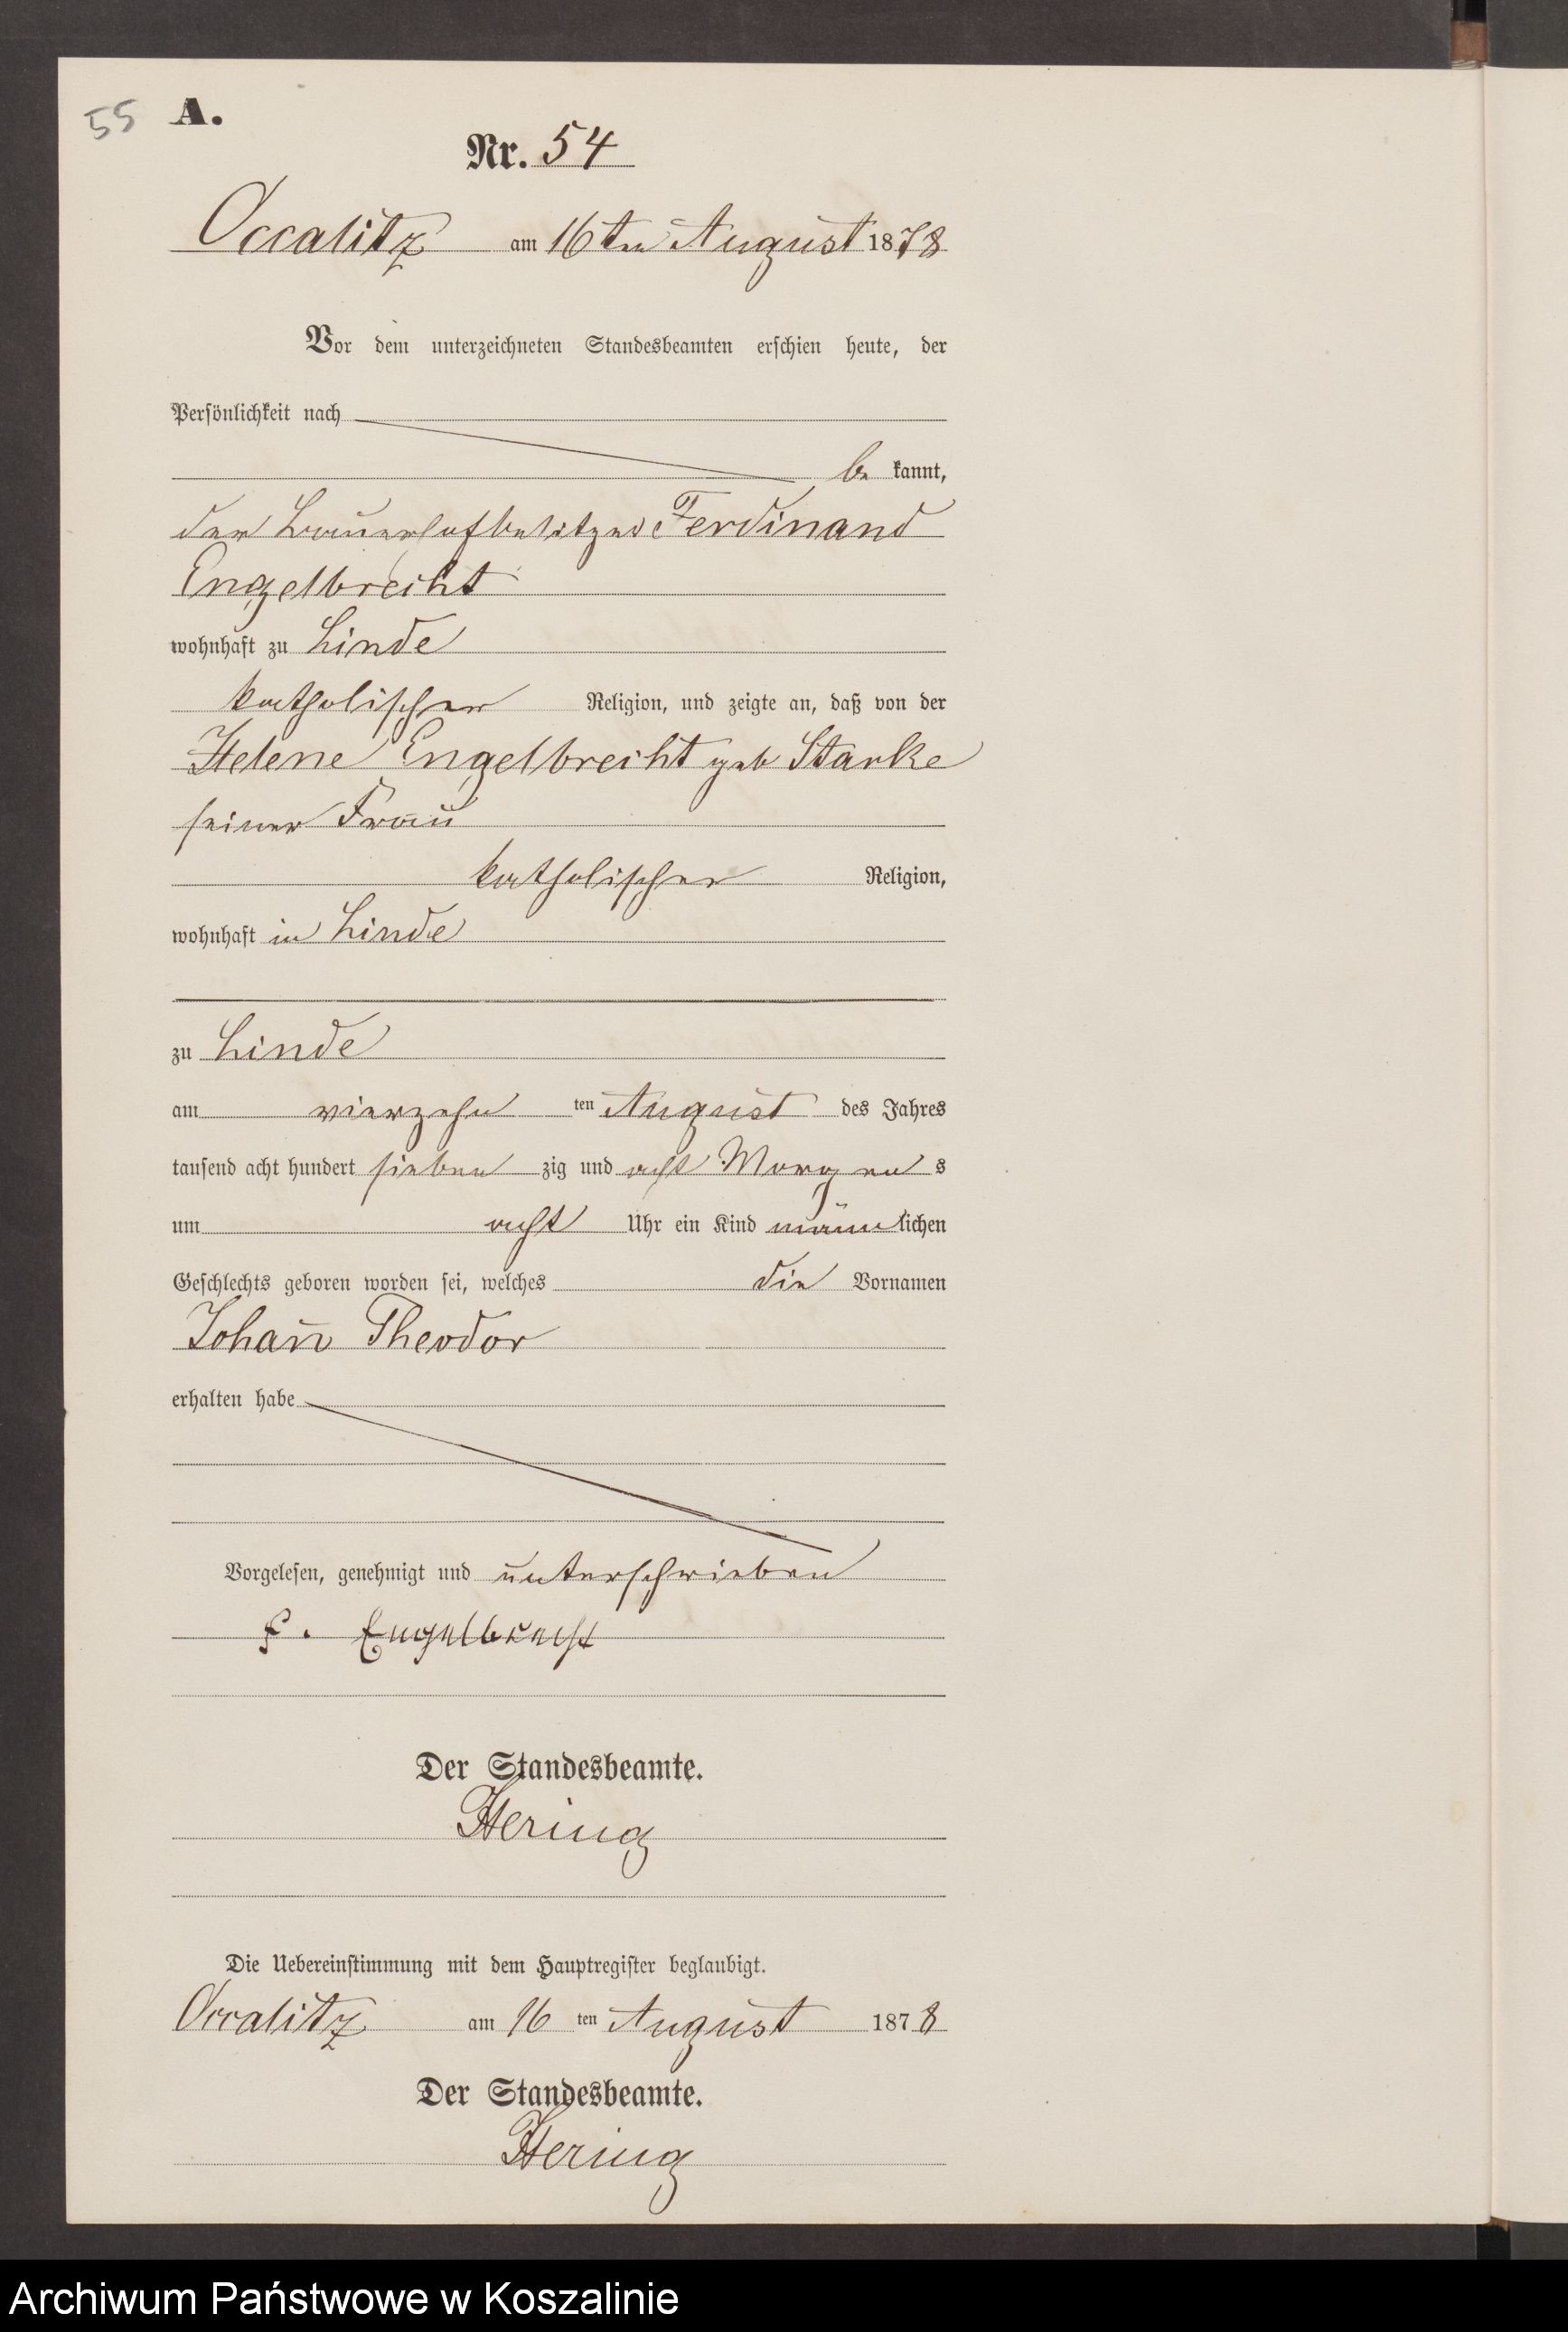 55 A.
Nr. 54
Occalitz am 16ten August 1878
Vor dem unterzeichneten Standesbeamten erschien heute, der
Persönlichkeit nach
be kannt,
der Bauerhofbesitzer Ferdinand
Engelbrecht
wohnhaft zu Linde
katholischer Religion, und zeigte an, daß von der
Helene Engelbrecht geb Starke
seiner Frau
katholischer Religion,
wohnhaft in Linde
zu Linde
am vierzehn ten August des Jahres
tausend acht hundert sieben zig und acht Morgen s
um acht Uhr ein Kind männ lichen
Geschlechts geboren worden sei, welches die Vornamen
Johan̄ Theodor
erhalten habe
Vorgelesen, genehmigt und unterschrieben
F. Engelbrecht
Der Standesbeamte.
Hering
Die Uebereinstimmung mit dem Hauptregister beglaubigt.
Occalitz am 16 ten August 1878
Der Standesbeamte.
Hering
Archiwum Państwowe w Koszalinie